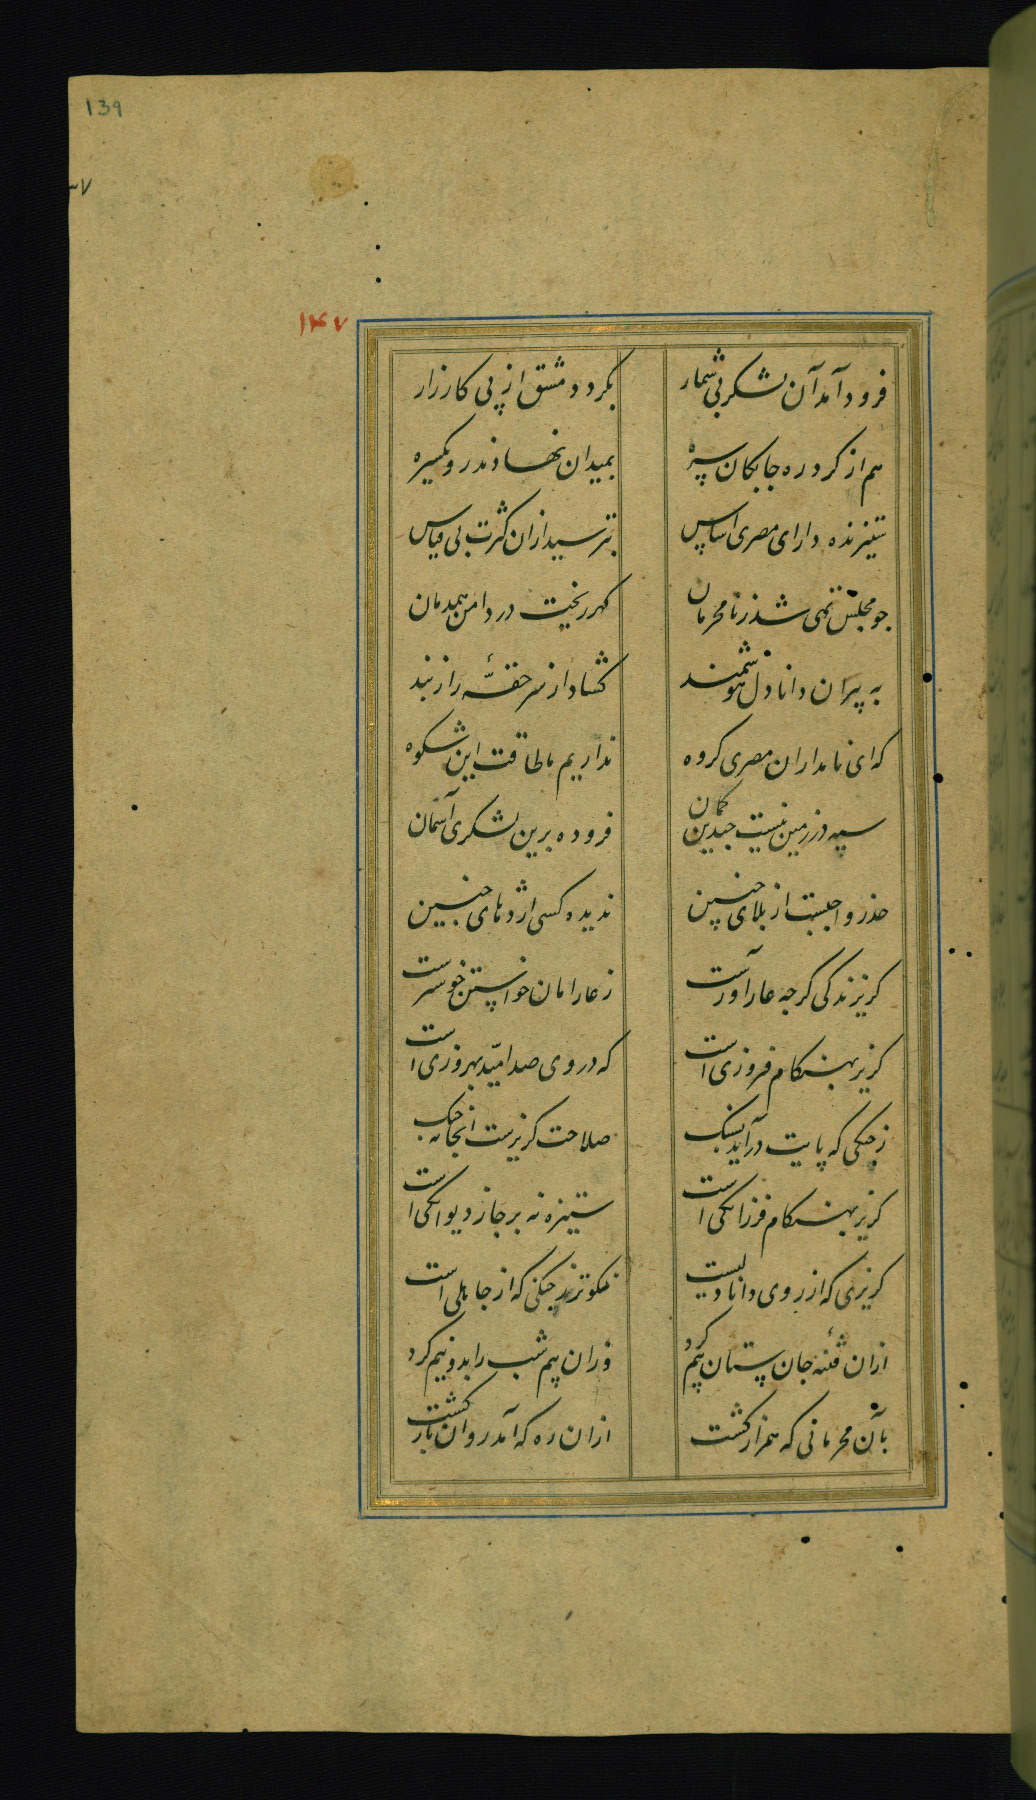 139
۱۴۷
فرود آمد آن لشکر بی شمار بکرد دمشق از پی کارزار
هم از کرد ره جابکان سپره بمیدان نهادند رو یکسره
ستیزنده دارای مصری اساس بترسید از ان کثرت بی قیاس
جو مجلس تهی شد ز نامحرمان کهر ریخت در دامن همدمان
به پیران دانا دل هوشمند کشاد از سر حقهٔ راز بند
که ای نامداران مصری کروه نداریم ما طاقت این شکوه
سپه در زمین نیست جندین کمان فرود برین لشکری آسمان
حذر واجبست از بلای جنین ندیده کسی اژدهای جنین
کریز ندکی کرجه عار آورست ز عار امان خواستن خوشترست
کریز بهنکام فیروزی است که در وی صد امید بهروزی است
ز جنکی که پایت در آید بسنک صلاحت کریزست از انجا نه جنک
کریز بهنکام فرزانکی است ستیزه نه بر جا ز دیوانکی است
کریزی که از روی دانا دلیست نکوتر ز جنکی که از جاهلی است
از ان فتنه جان پستان بیم کرد وز ان بیم شب را بدو نیم کرد
بآن محرمانی که همراز کشت از ان ره که آمد روان باز کشت